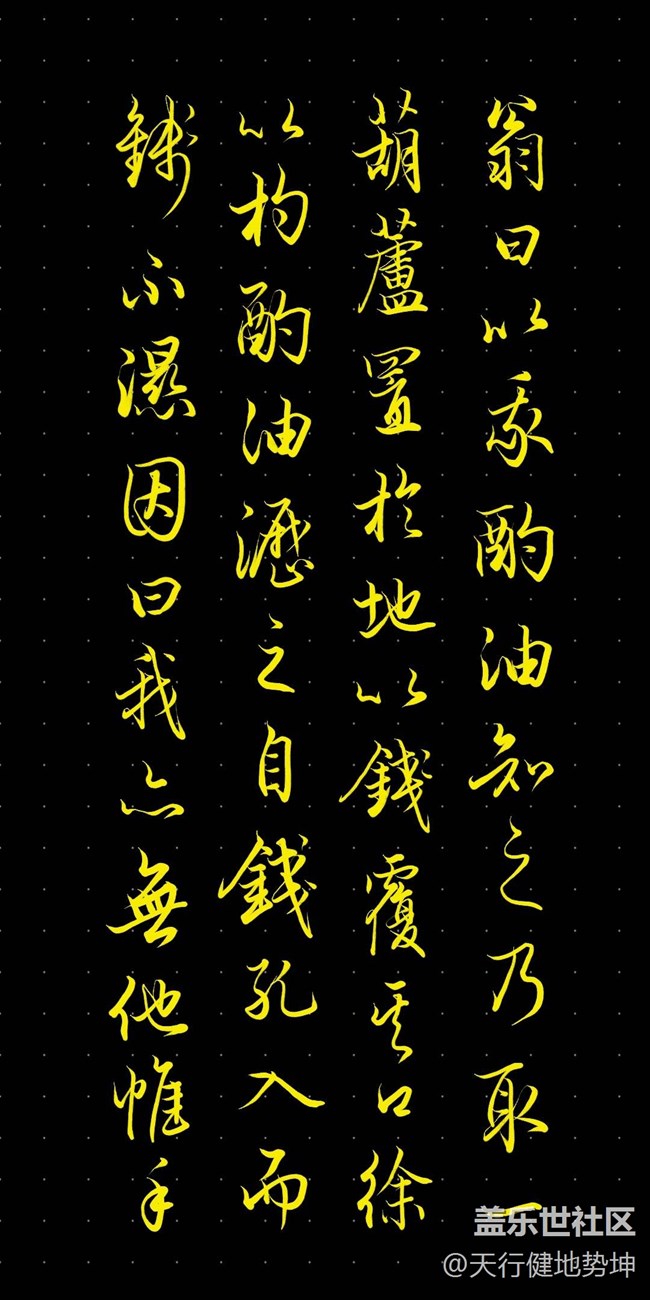 翁曰以我酌油知之乃取一
葫蘆置於地以錢覆其口徐
以杓酌油瀝之自錢孔入而
錢不濕因曰我亦無他惟手
盖乐世社区
@天行健地势坤